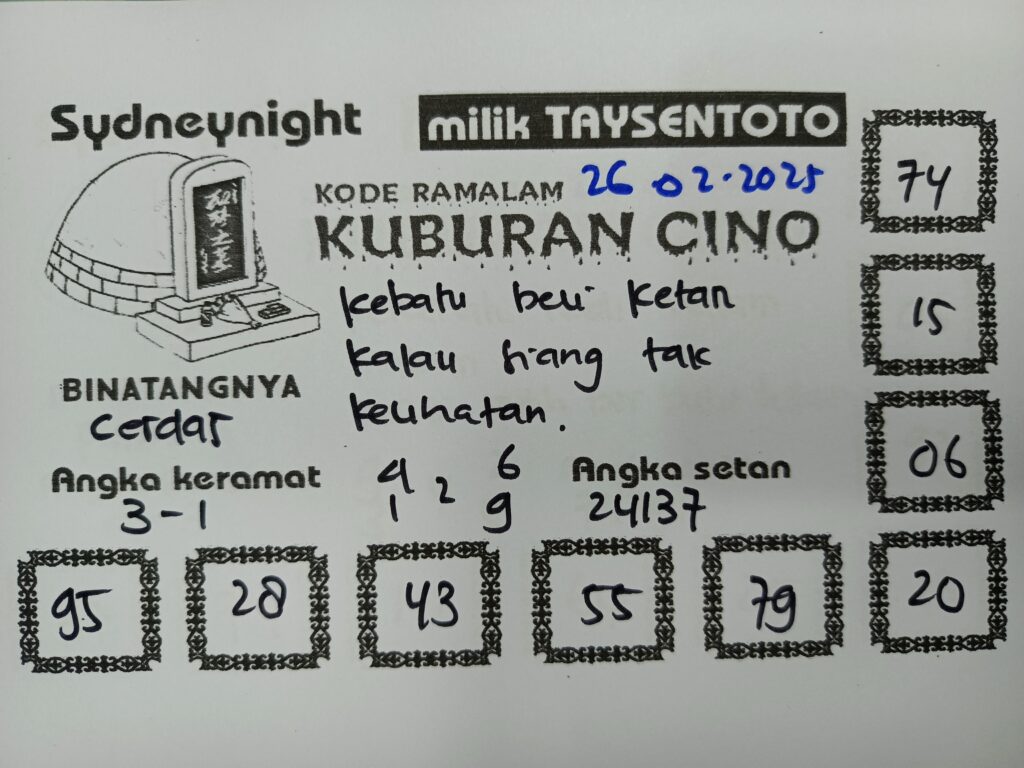 Sydneynight
milik TAYSENTOTO
KODE RAMALAM 26-02-2025
KUBURAN CINO
kebatu beli ketan
kalau siang tak
kelihatan.
BINATANGNYA
cerdas
Angka keramat
3-1
4 6
1 2 9
Angka setan
24137
74
15
06
95 28 43 55 79 20